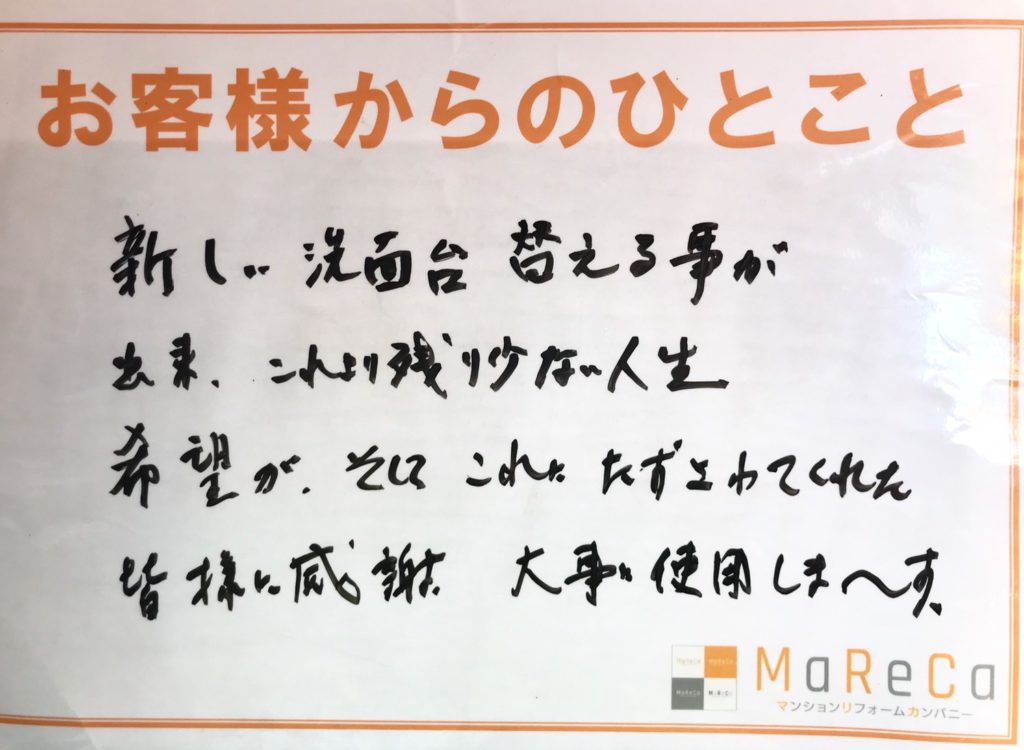 お客様からのひとこと
新しい 洗面台 替える事が
出来、これより残り少ない人生
希望が、そして これに たずさわってくれた
皆様に感謝 大事に使用しま〜す。
MaReCa
マンションリフォームカンパニー